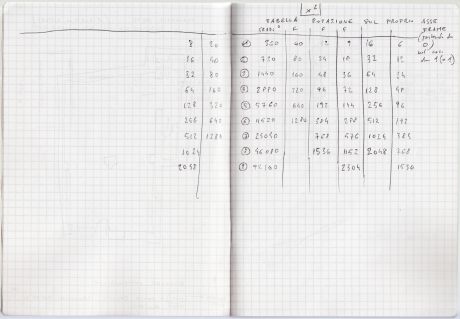 x²
TABELLA ROTAZIONE SUL PROPRIO ASSE
GRADI° F F F FRAME
8 20 360 40 12 9 16 6
16 40 720 80 24 18 32 12
32 80 1440 160 48 36 64 24
64 160 2880 320 96 72 128 48
128 320 5760 640 192 144 256 96
256 640 11520 1280 384 288 512 192
512 1280 23040 768 576 1024 383
1024 46080 1536 1152 2048 768
2048 92160 2304 1536